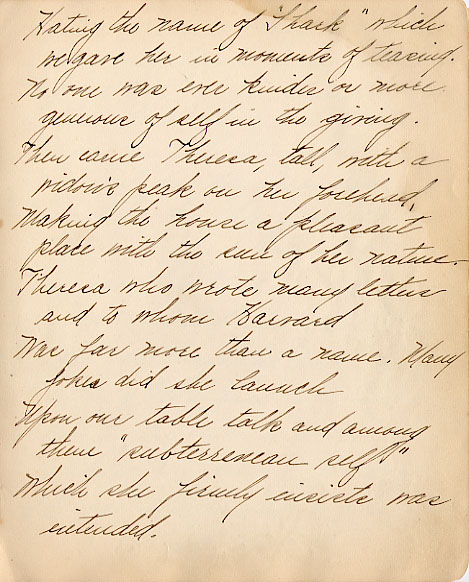 Hating the name of "Shark" which
we gave her in moments of teasing.
No one was ever kinder or more
generous of self in the giving.
Then came Theresa, tall, with a
widow's peak on her forehead,
Making the house a pleasant
place with the sun of her nature.
Theresa who wrote many letters
and to whom Harvard
Was far more than a name. Many
jokes did she launch
Upon our table talk and among
them "subterrenean self"
Which she firmly insists was
intended.